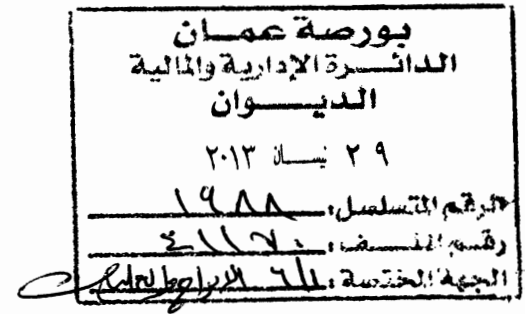 بورصة عمان
الدائرة الإدارية والمالية
الديوان
٢٩ نيسان ٢٠١٣
الرقم المتسلسل: ١٩٨٨
رقم الملف: ٤١١٧٠
الجهة المختصة: الإدراج والعمليات